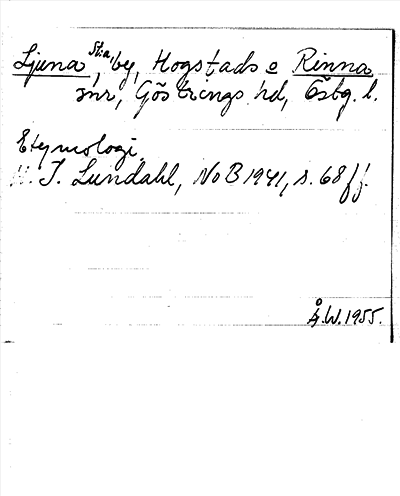 Ljuna, St:a, by, Hogstads o Rinna
snr, Göstrings hd, Östg. l.
Etymologi.
I. Lundahl, NoB 1941, s. 68 ff.
Å.W. 1955.